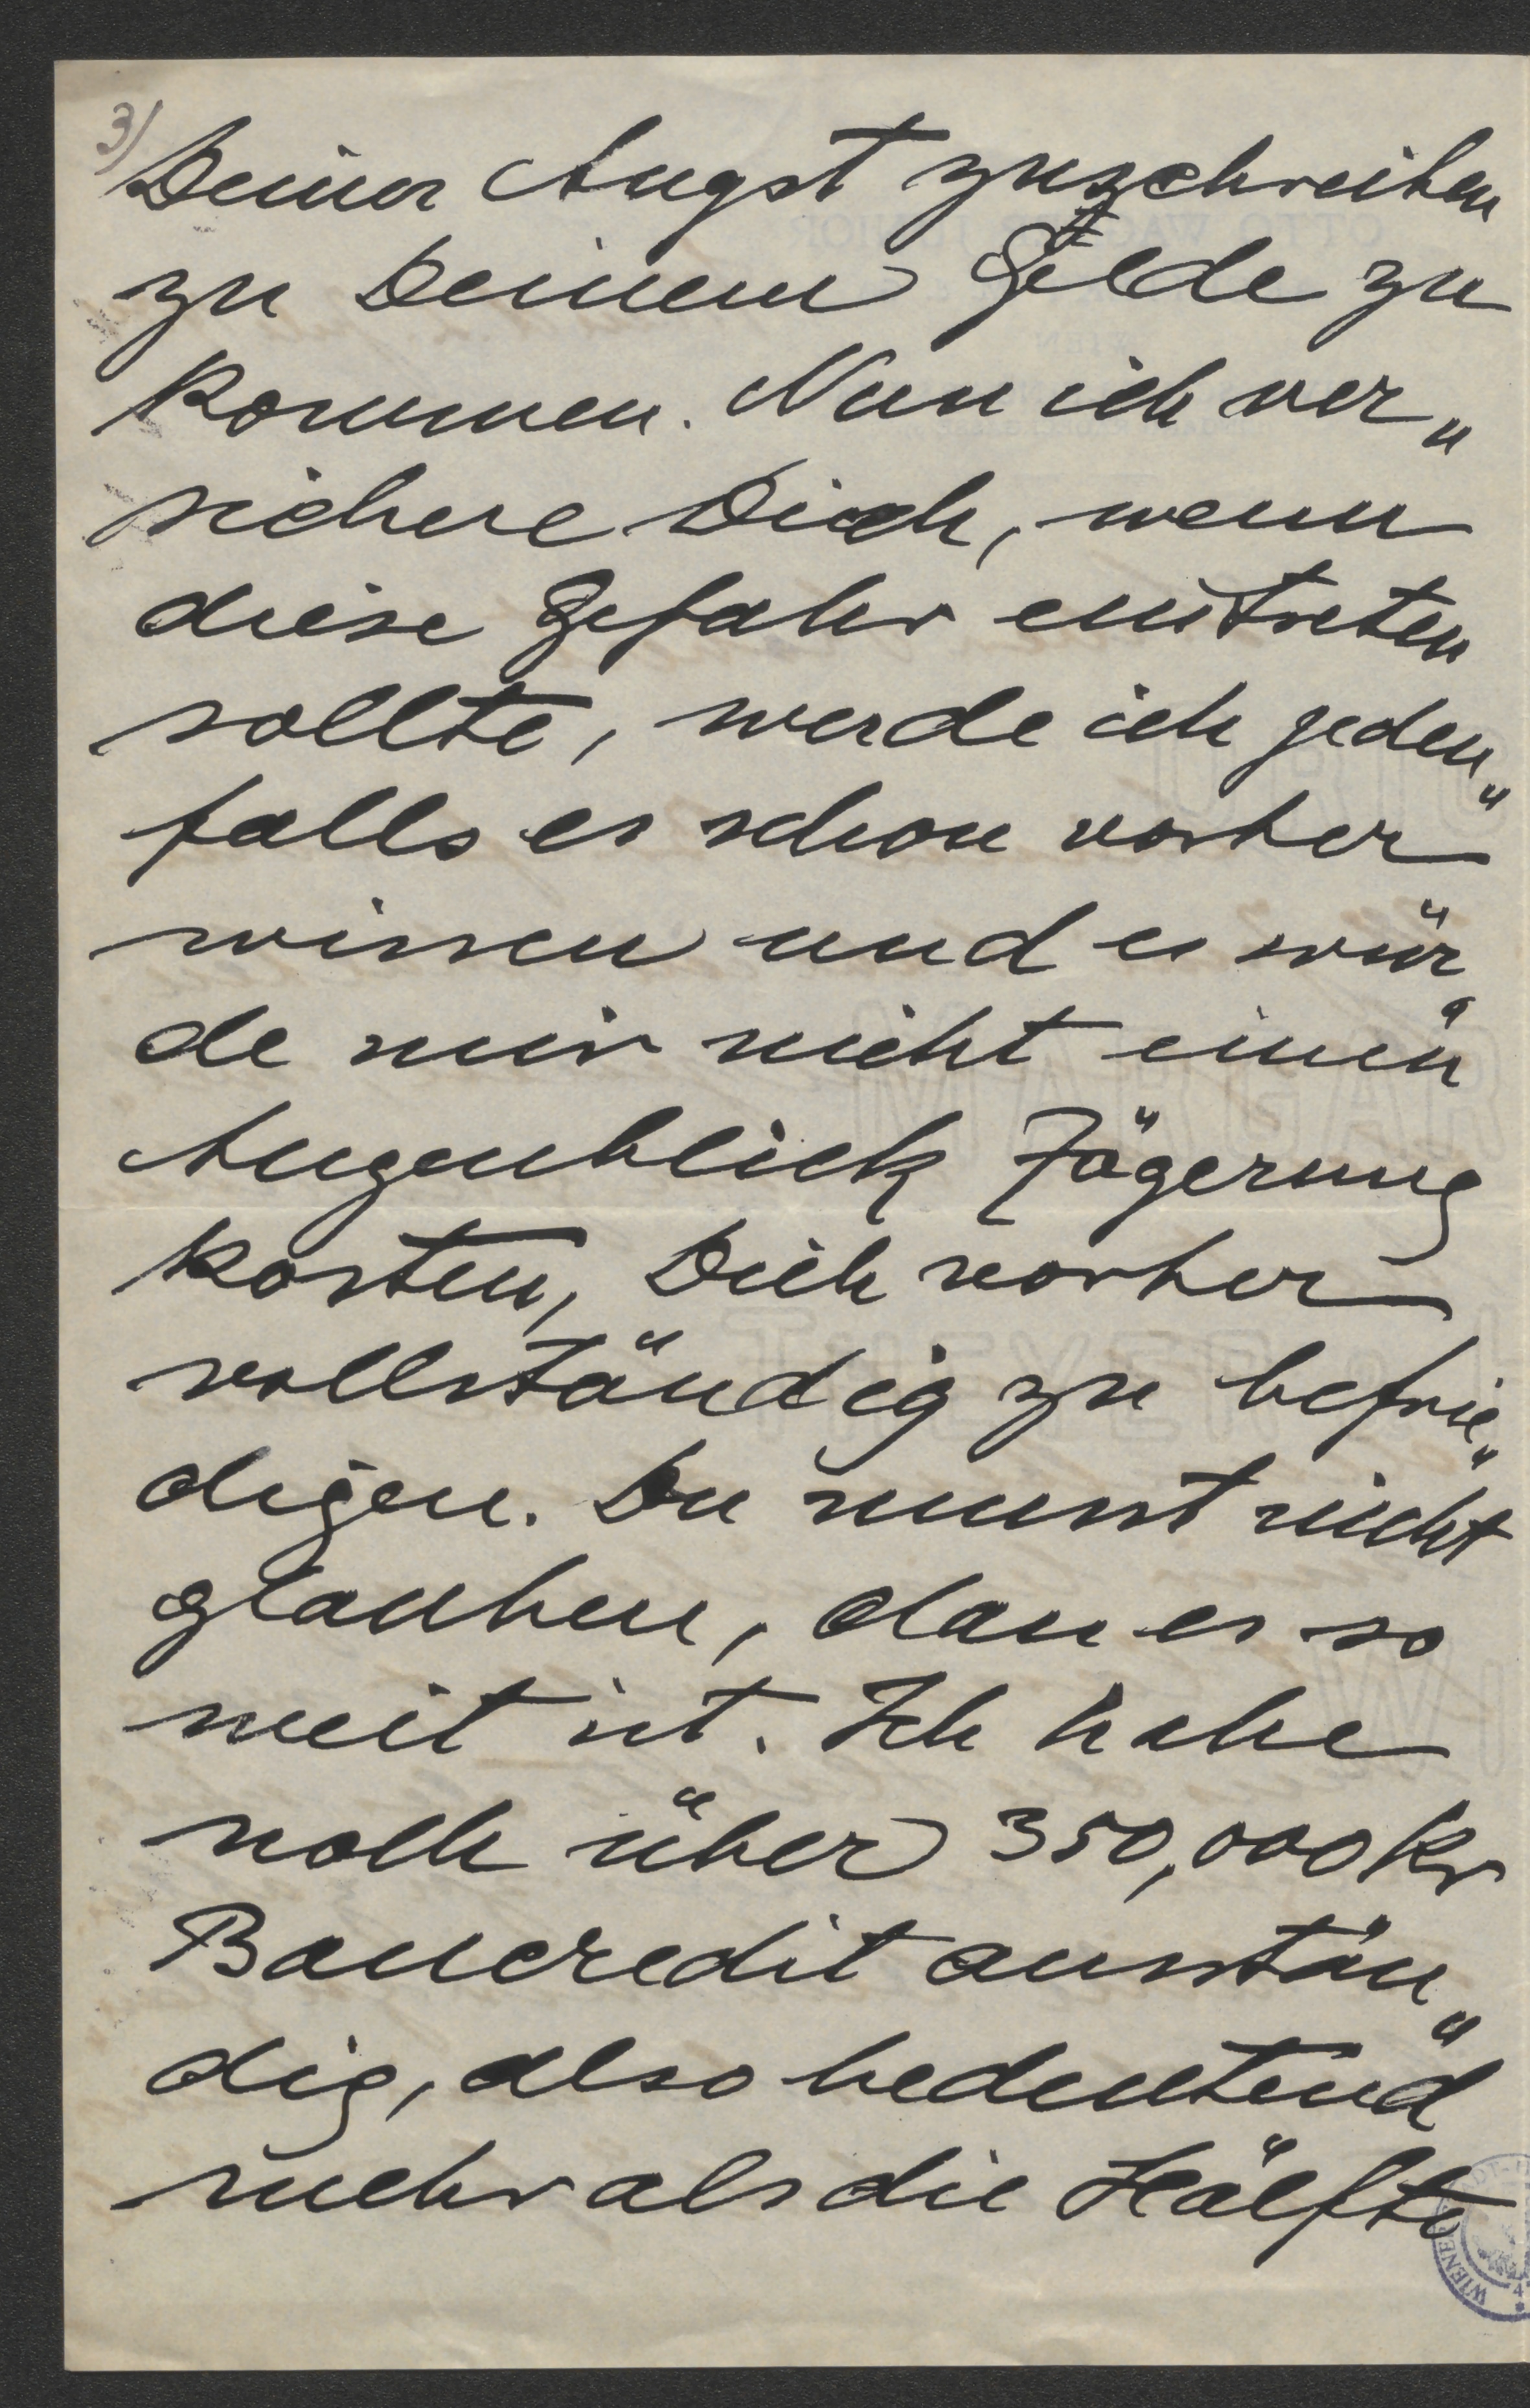 3)
Deiner Angst zuschreiben
zu Deinem Gelde zu
kommen. Nun ich ver„
sichere Dich, wenn
diese Gefahr eintreten
sollte, werde ich jeden„
falls es schon vorher
wissen und es wür„
de mir nicht einen
Augenblick Zögerung
kosten, Dich vorher
vollständig zu befrie„
digen. Du musst nicht
glauben, dass es so
weit ist. Ich habe
noch über 350,000 Kr
Baucredit ausstän„
dig, also bedeutend
mehr als die Hälfte
WIENER